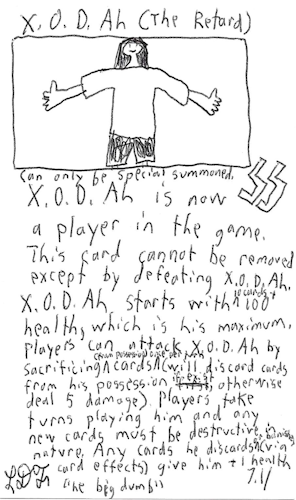 X.O.D.Ah (The Retard)
can only be special summoned.
X.O.D.Ah is now
a player in the game.
This card cannot be removed
except by defeating X.O.D.Ah.
X.O.D.Ah starts with 10 cards + 100
health, which is his maximum,
players can attack X.O.D.Ah by
sacrificing cards (will discard cards
from his possession otherwise
deal 5 damage). Players take
turns playing him and any
new cards must be destructive in
nature. Any cards he discards (via
card effects) give him +1 health
"he big dumb"